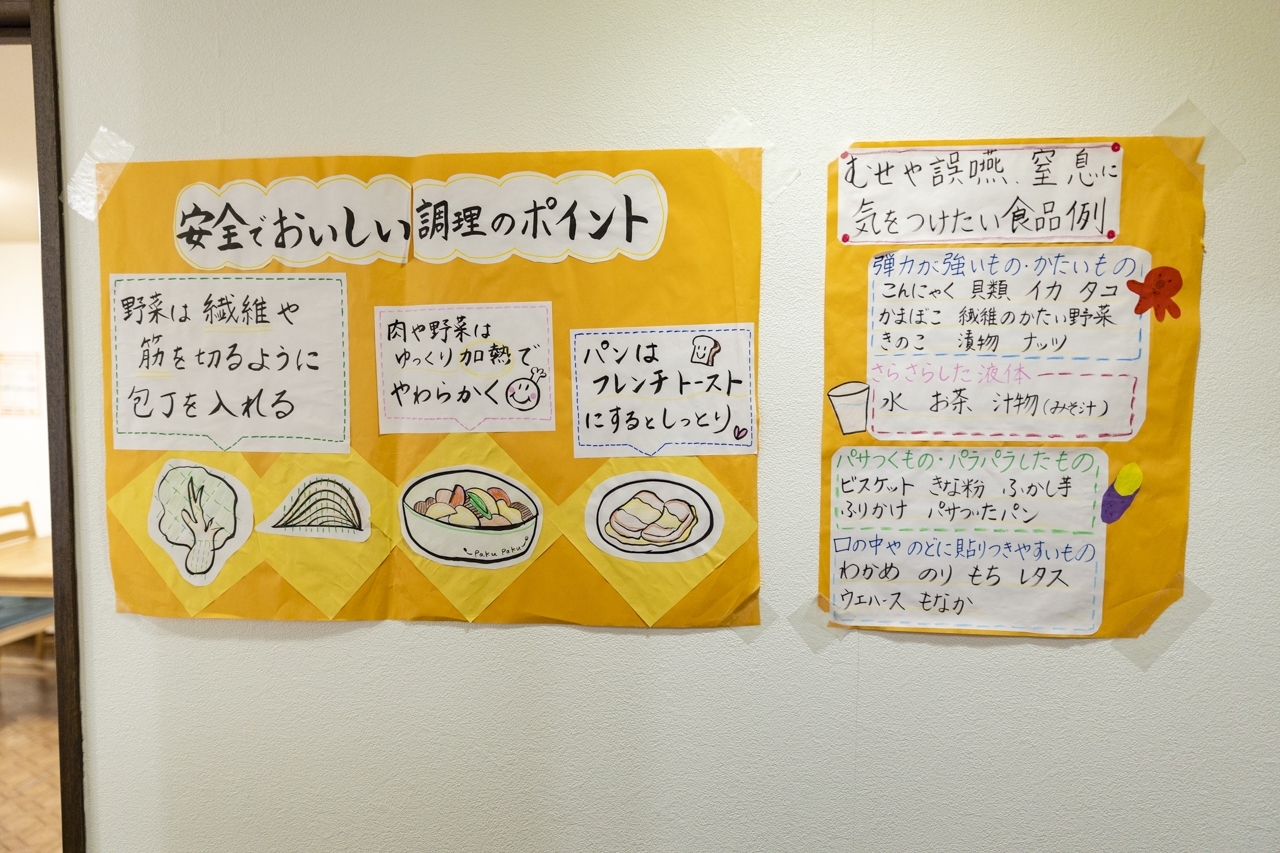 安全でおいしい調理のポイント
野菜は繊維や
筋を切るように
包丁を入れる
肉や野菜は
ゆっくり加熱で
やわらかく
パンは
フレンチトースト
にするとしっとり
Paku Paku
むせや誤嚥、窒息に
気をつけたい食品例
弾力が強いもの・かたいもの
こんにゃく 貝類 イカ タコ
かまぼこ 繊維のかたい野菜
きのこ 漬物 ナッツ
さらさらした液体
水 お茶 汁物(みそ汁)
パサつくもの・パラパラしたもの
ビスケット きな粉 ふかし芋
ふりかけ パサついたパン
口の中やのどに貼りつきやすいもの
わかめ のり もち レタス
ウエハース もなか